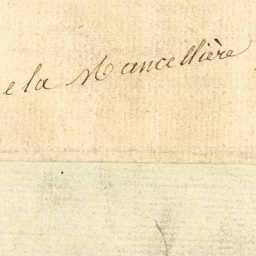 e la Mancellière